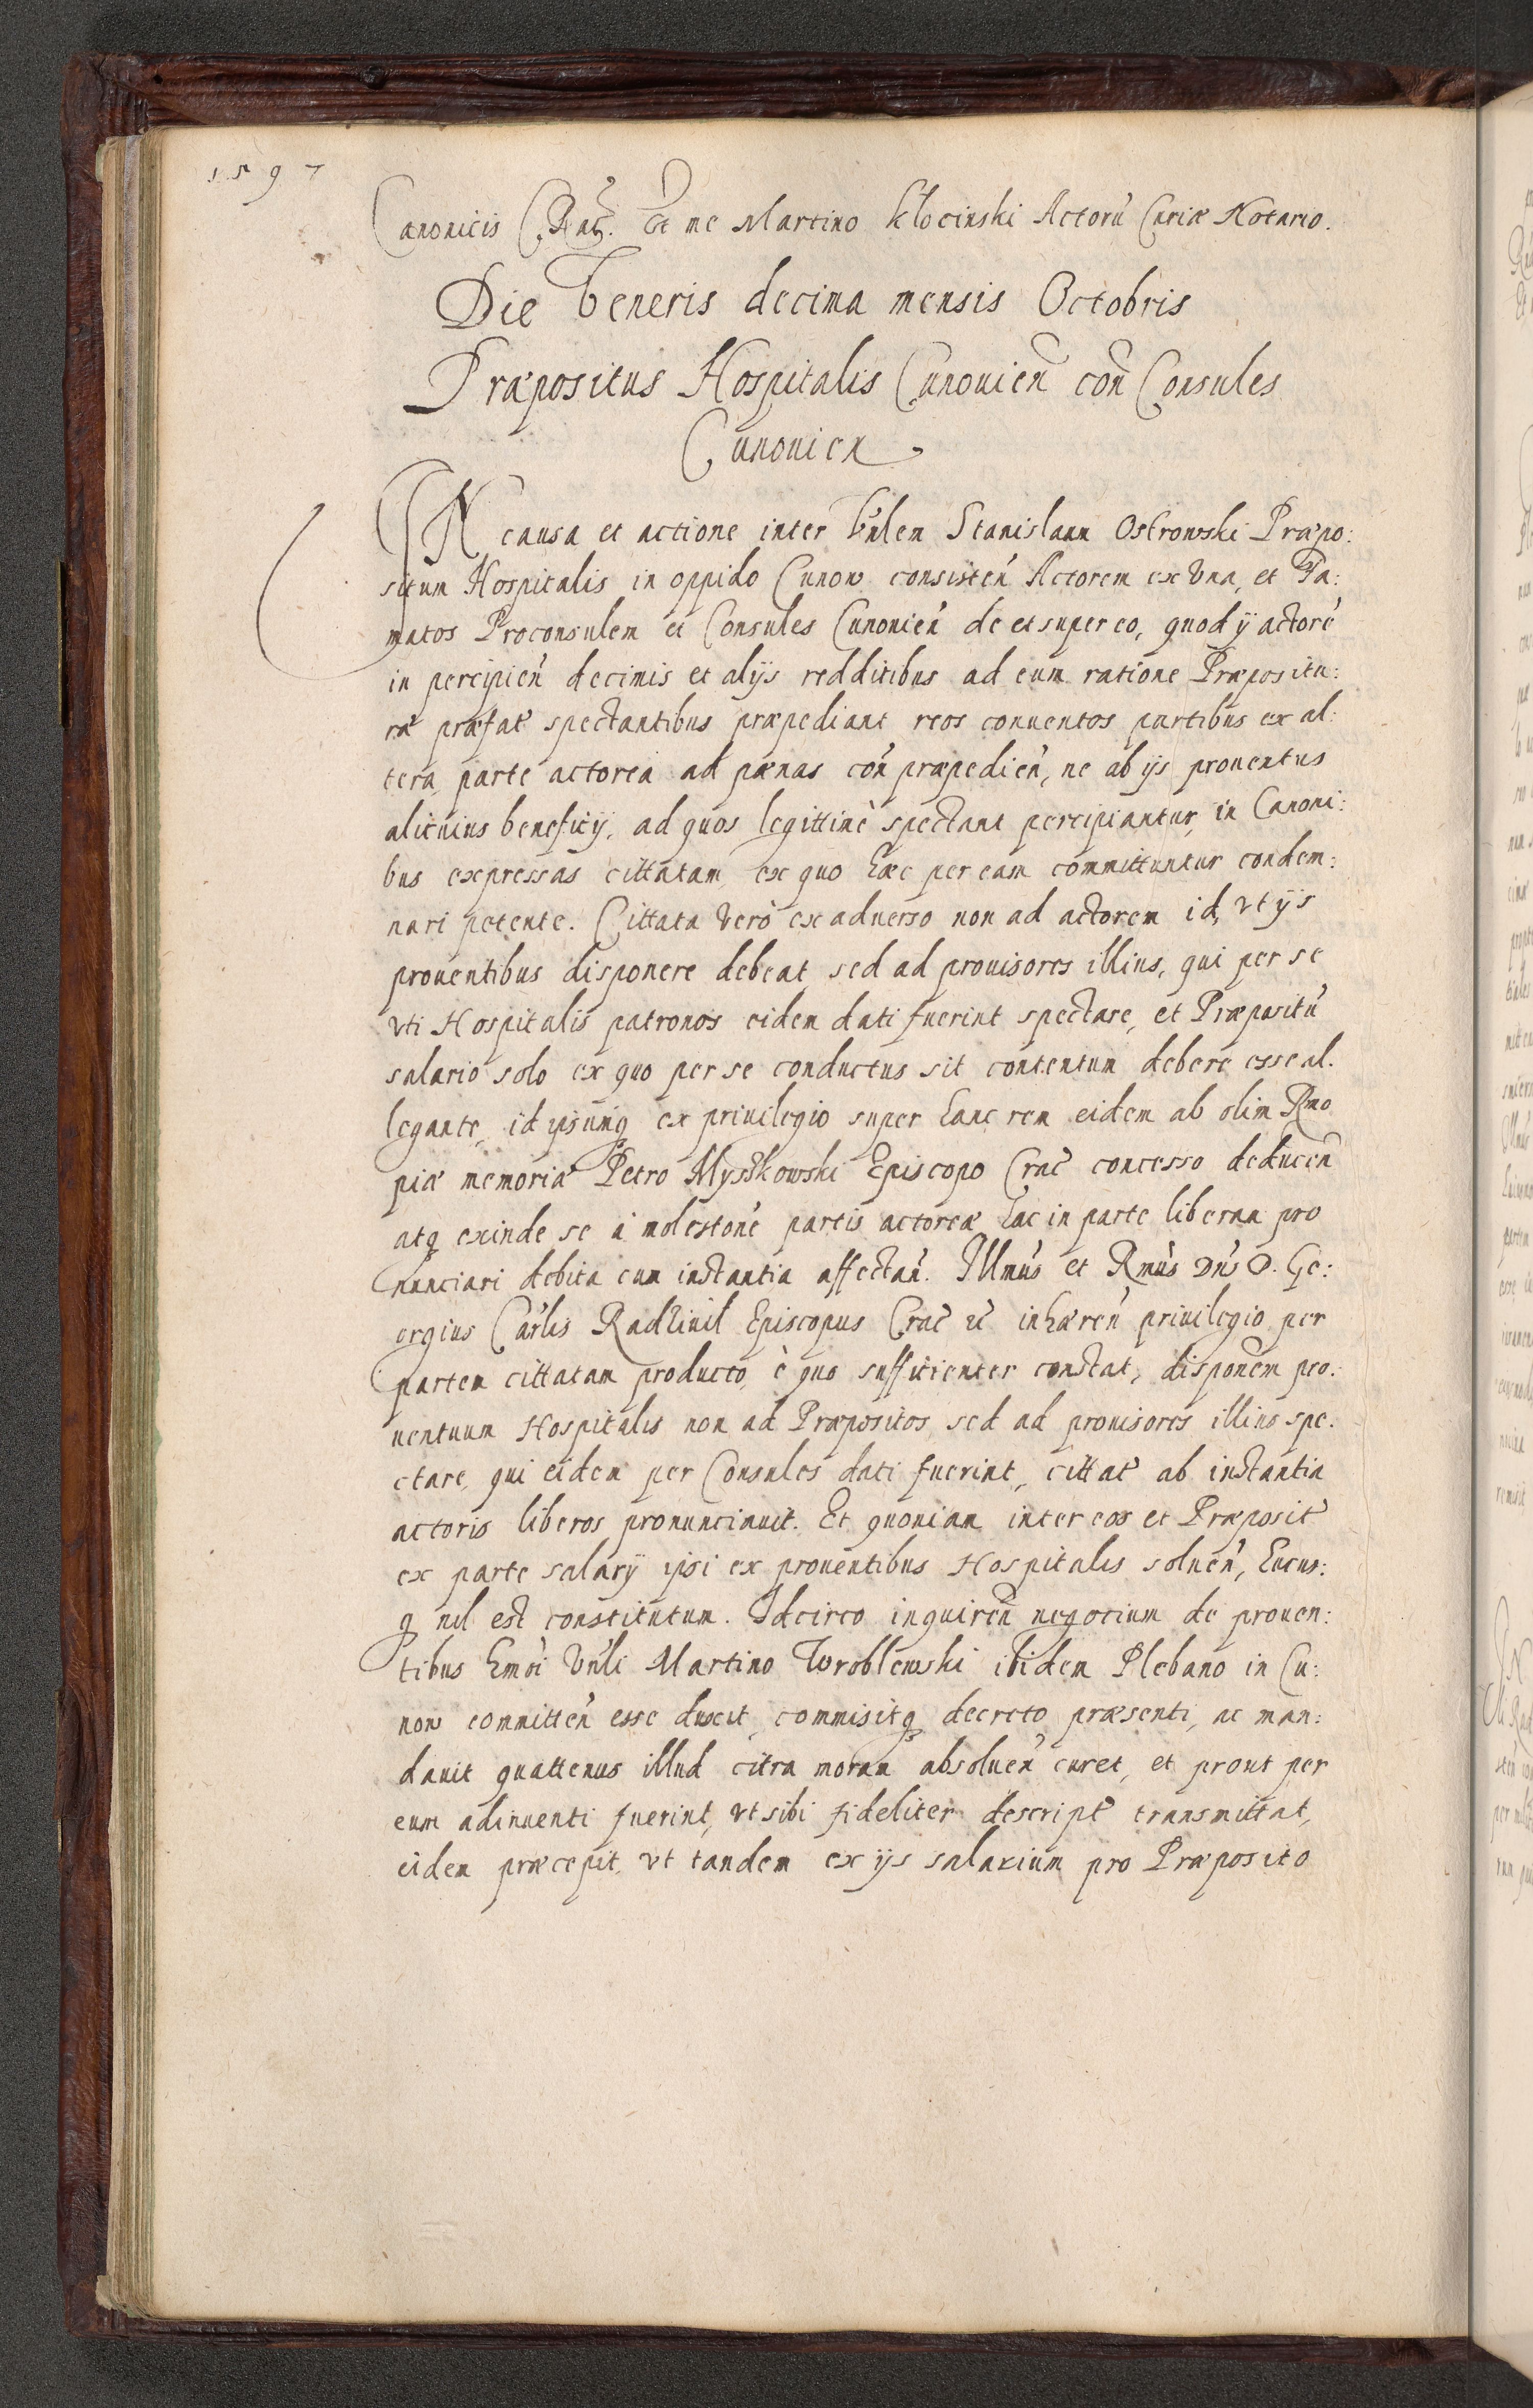 1597
Canonicis Crac. Et me Martino Klocinski Actorú Curiæ Notario.
Die Veneris decima mensis Octobris
Præpositus Hospitalis Cunouień coń Consules
Cunouien
IN causa et actione inter Vńlem Stanislaum Ostrowski Præpo:
situm Hospitalis in oppido Cunow consisteń Actorem ex Vna, et Fa:
matos Proconsulem et Consules Cunouień de et super eo, quod ÿ actoré
in percipień decimis et alÿs redditibus ad eum ratione Præpositu:
ræ præfat spectantibus præpediant reos conuentos partibus ex al:
tera, parte actorea ad pænas coń præpedień, ne ab ÿs prouentus
alicuius beneficÿ, ad quos legittimè spectant percipiantur, in Canoni:
bus expressas cittatam, ex quo hæc per eam committuntur condem:
nari petente. Cittata verò ex aduerso non ad actorem id, vt ÿs
prouentibus disponere debeat, sed ad prouisores illius, qui per se
vti Hospitalis patronos eidem dati fuerint spectare, et Præpositú
salario solo ex quo per se conductus sit contentum debere esse al.
legante, id ipsumq ex priuilegio super hanc rem eidem ab olim Rmo
piæ memoriæ Petro Mysskowski Episcopo Crac concesso deduceń
atq exinde se à molestoné partis actoreæ hac in parte liberam pro
nunciari debita cum instantia affectań. Illmús et Rmús Dńs D. Ge:
orgius Carlis Radziuil Episcopus Crac etc inhæreń priuilegio per
partem cittatam producto, è quo sufficienter constat, disponem pro:
uentuum Hospitalis non ad Præpositos, sed ad prouisores illius spe.
ctare, qui eidem per Consules dati fuerint, cittat ab instantia
actoris liberos pronunciauit. Et quoniam inter eos et Præposit
ex parte salarÿ ipsi ex prouentibus Hospitalis solueń, hucus:
q nil est constitutum. Idcirco inquireń negocium de prouen:
tibus hmoi Vńli Martino Wroblewski ibidem Plebano in Cu:
now committeń esse duxit, commisitq decreto præsenti, ac man:
dauit quattenus illud citra moram absolueń curet, et prout per
eum adinuenti fuerint, vt sibi fideliter descript transmittat,
eidem præcepit, vt tandem ex ÿs salarium pro Præposito